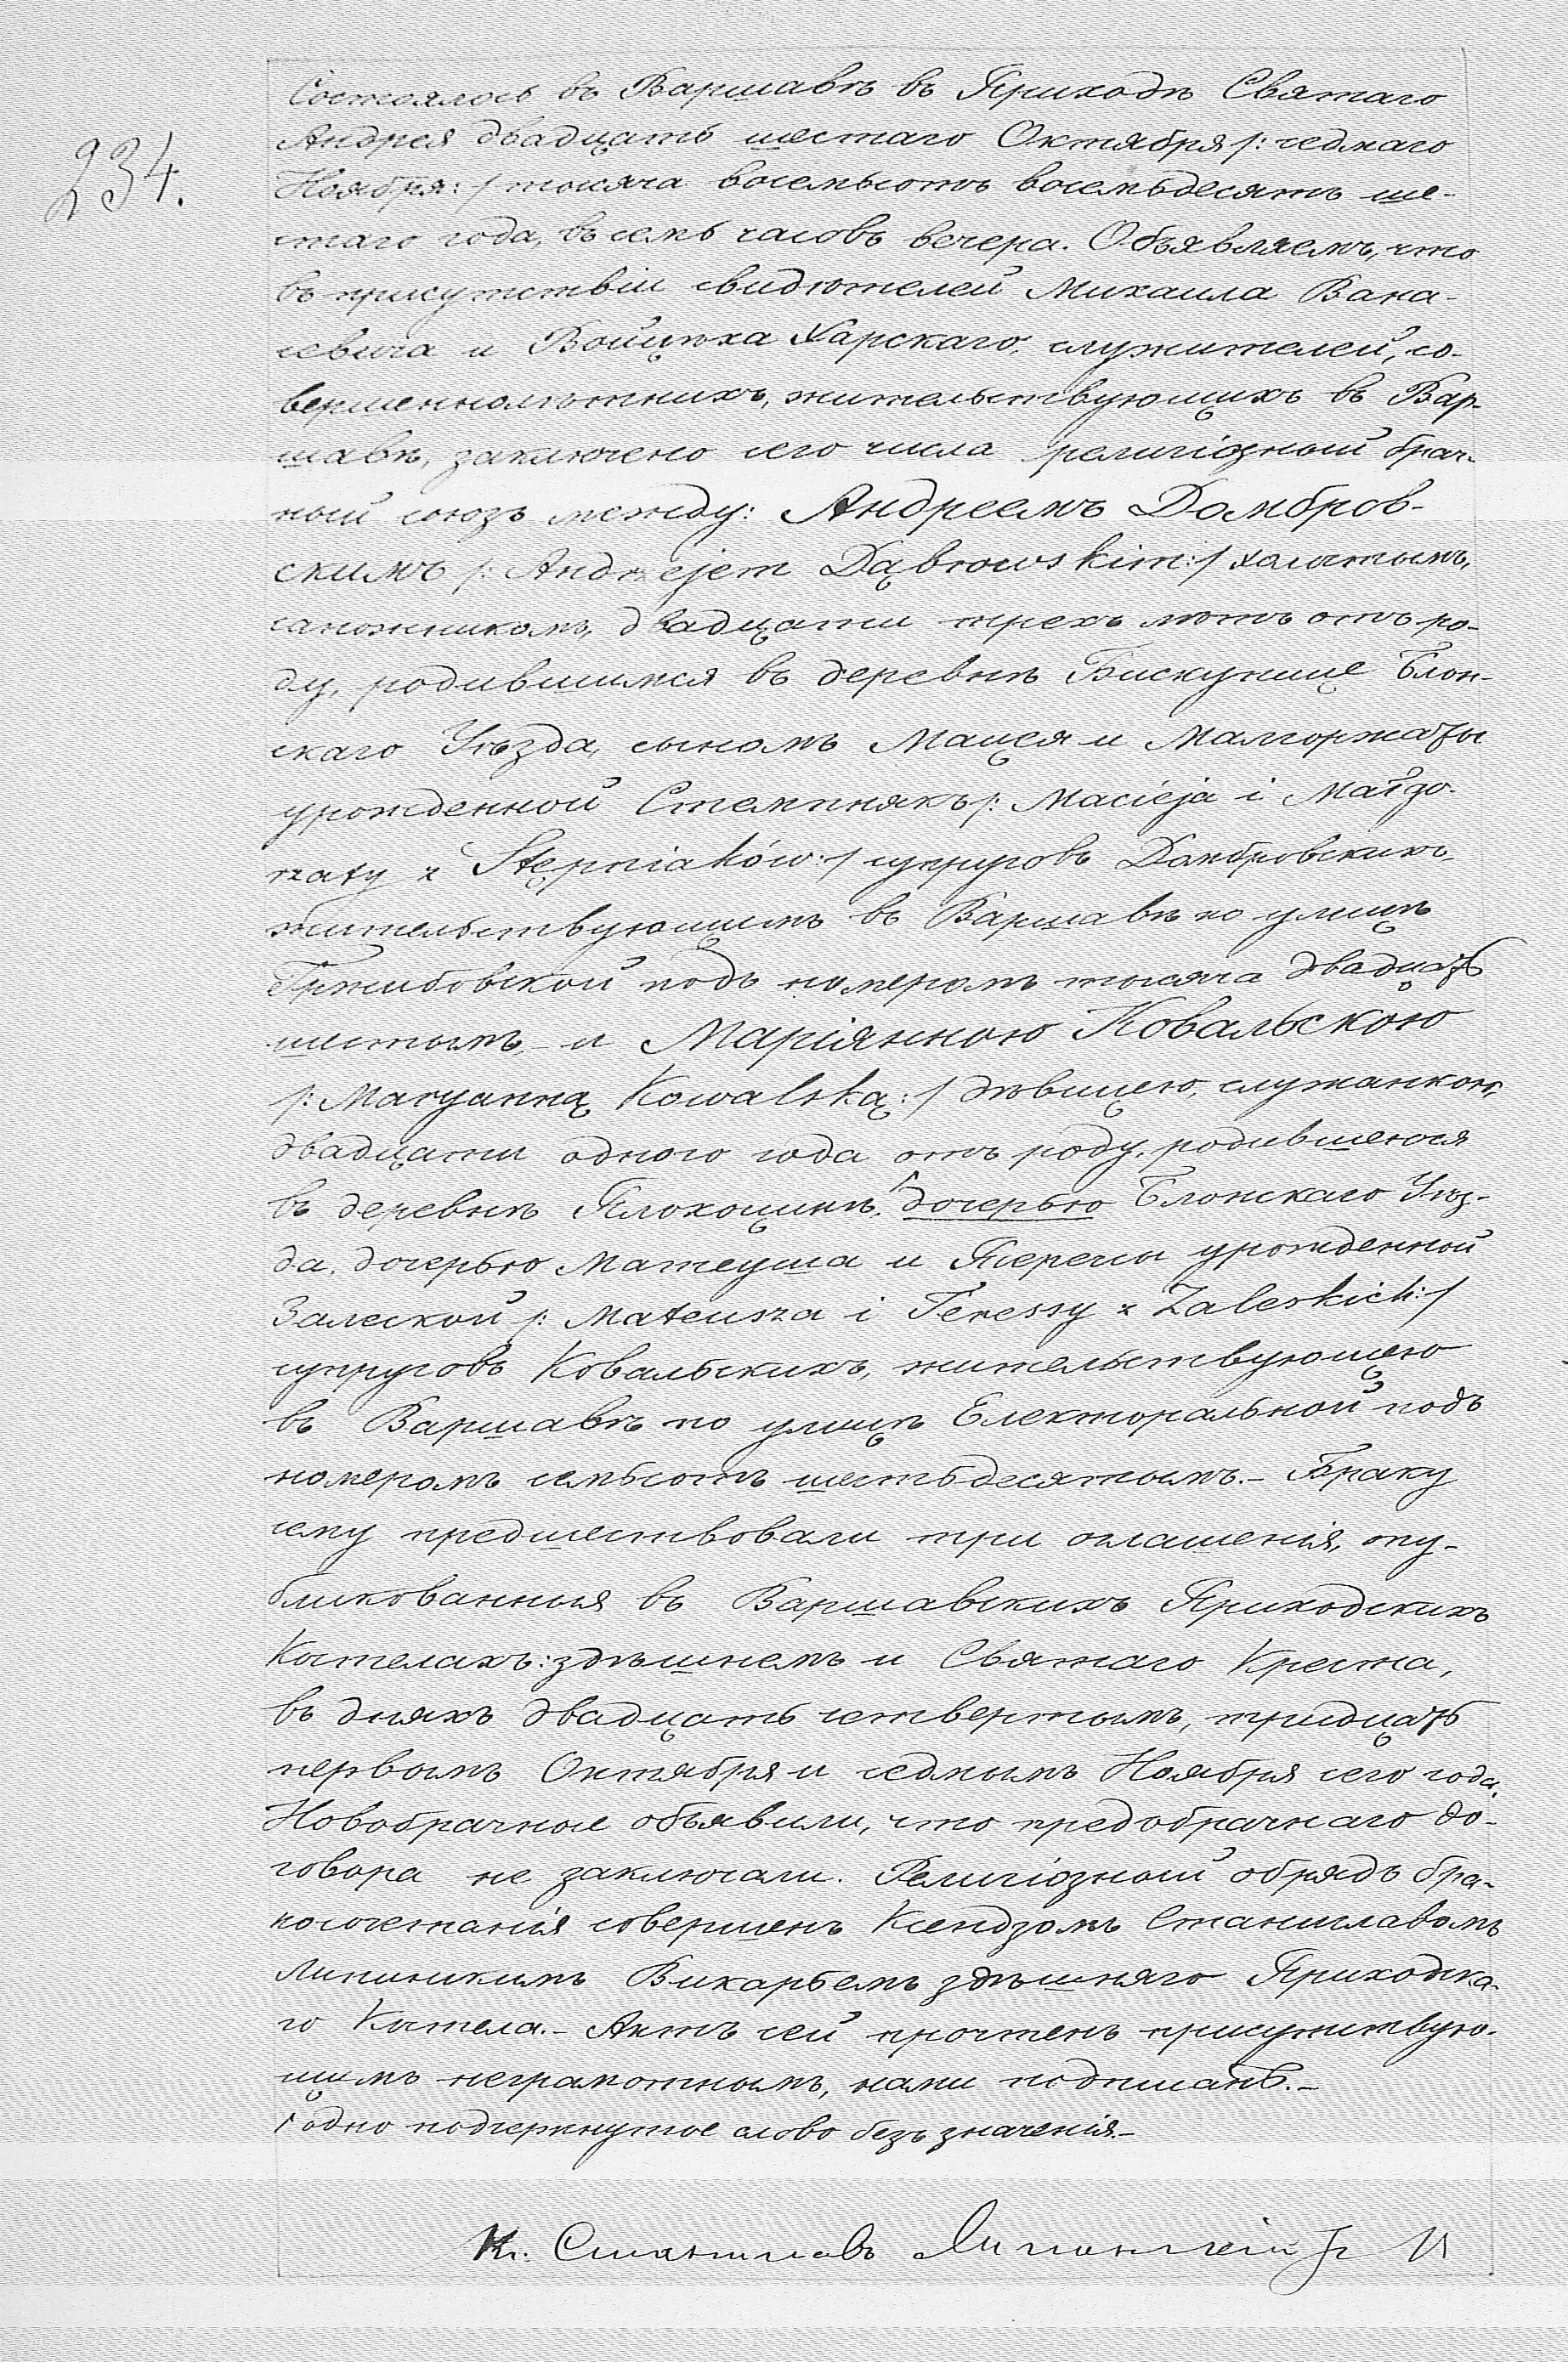 234.
Состоялось въ Варшавѣ въ Приходѣ Святаго
Андрея двадцать шестаго Октября /: седмаго
Ноября: / тысяча восемьсотъ восемьдесятъ ше-
стаго года, въ семь часовъ вечера. Объявляемъ, что
въ присутствіи свидѣтелей Михаила Вана-
севича и Войцѣха Харскаго, служителей, со-
вершеннолѣтнихъ, жительствующихъ въ Вар-
шавѣ, заключено сего числа религіозный брач-
ный союзъ между: Андреемъ Домбров-
скимъ /: Andrzejem Dąbrowskim: / холостымъ,
сапожникомъ, двадцати трехъ лѣтъ отъ ро-
ду, родившимся въ деревнѣ Бискупице Блон-
скаго Уѣзда, сыномъ Мацея и Малгоржаты
урожденной Стемпнякъ /: Macieja i Małgo-
rzaty z Stępniaków: / супруговъ Домбровскихъ,
жительствующимъ въ Варшавѣ по улицѣ
Гржибовской подъ номеромъ тысяча двадцать
шестымъ, - и Маріянною Ковальскою
/: Maryanną Kowalską: / дѣвицею, служанкою,
двадцати одного года отъ роду, родившеюся
въ деревнѣ Плохоцинѣ, ^ дочерью Блонскаго Уѣз-
да, дочерью Матеуша и Терессы урожденной
Залеской /: Mateusza i Teressy z Zaleskich: /
супруговъ Ковальскихъ, жительствующею
въ Варшавѣ по улицѣ Електоральной подъ
номеромъ семьсотъ шестьдесятымъ. - Браку
сему предшествовали три оглашенія, опу-
бликованныя въ Варшавскихъ Приходскихъ
Костелахъ: здѣшнемъ и Святаго Креста,
въ дняхъ двадцать четвертымъ, тридцать
первымъ Октября и седмымъ Ноября сего года.
Новобрачные объявили, что предбрачнаго до-
говора не заключали. Религіозный обрядъ бра-
косочетанія совершенъ Ксендзомъ Станиславомъ
Липинскимъ Викарьемъ здѣшняго Приходска-
го Костела. - Актъ сей прочтенъ присутствую-
щимъ неграмотнымъ, нами подписанъ. -
^ одно подчеркнутое слово безъ значенія. -
Кс. Станиславъ Липинскій